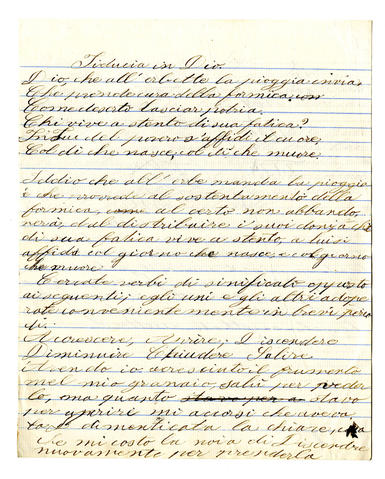 Fiducia in Dio.
Dio che all'erbette la pioggia invia,
Che prende cura della formica, 
Come deserto lasciar potria.
Chi vive a stento di sua fatica?
In Lui del povero s'affidi il cuore,
Col dì che nasce, col dì che muore.
Iddio che all'erbe manda la pioggia
e che provvede al sostentamento della
formica, come al certo non abbando
nerà, dal distribuire i suoi doni a chi
di sua fatica vive a stento, a lui si
affida col giorno che nasce, e col giorno
che muore
Cercate verbi di significato opposto
ai seguenti; e gli uni e gli altri adope
rate convenientemente in brevi perio
di:
Accrescere, Aprire, Discendere
Diminuire Chiudere Salire
Avendo io acresciuto il frumento
nel mio granaio, salii per veder
lo, ma quanto stavo per a stavo
per aprire mi accorsi che aveva
dimenticata la chiave,
che mi costò la noia di Discendere
nuovamente per prenderla